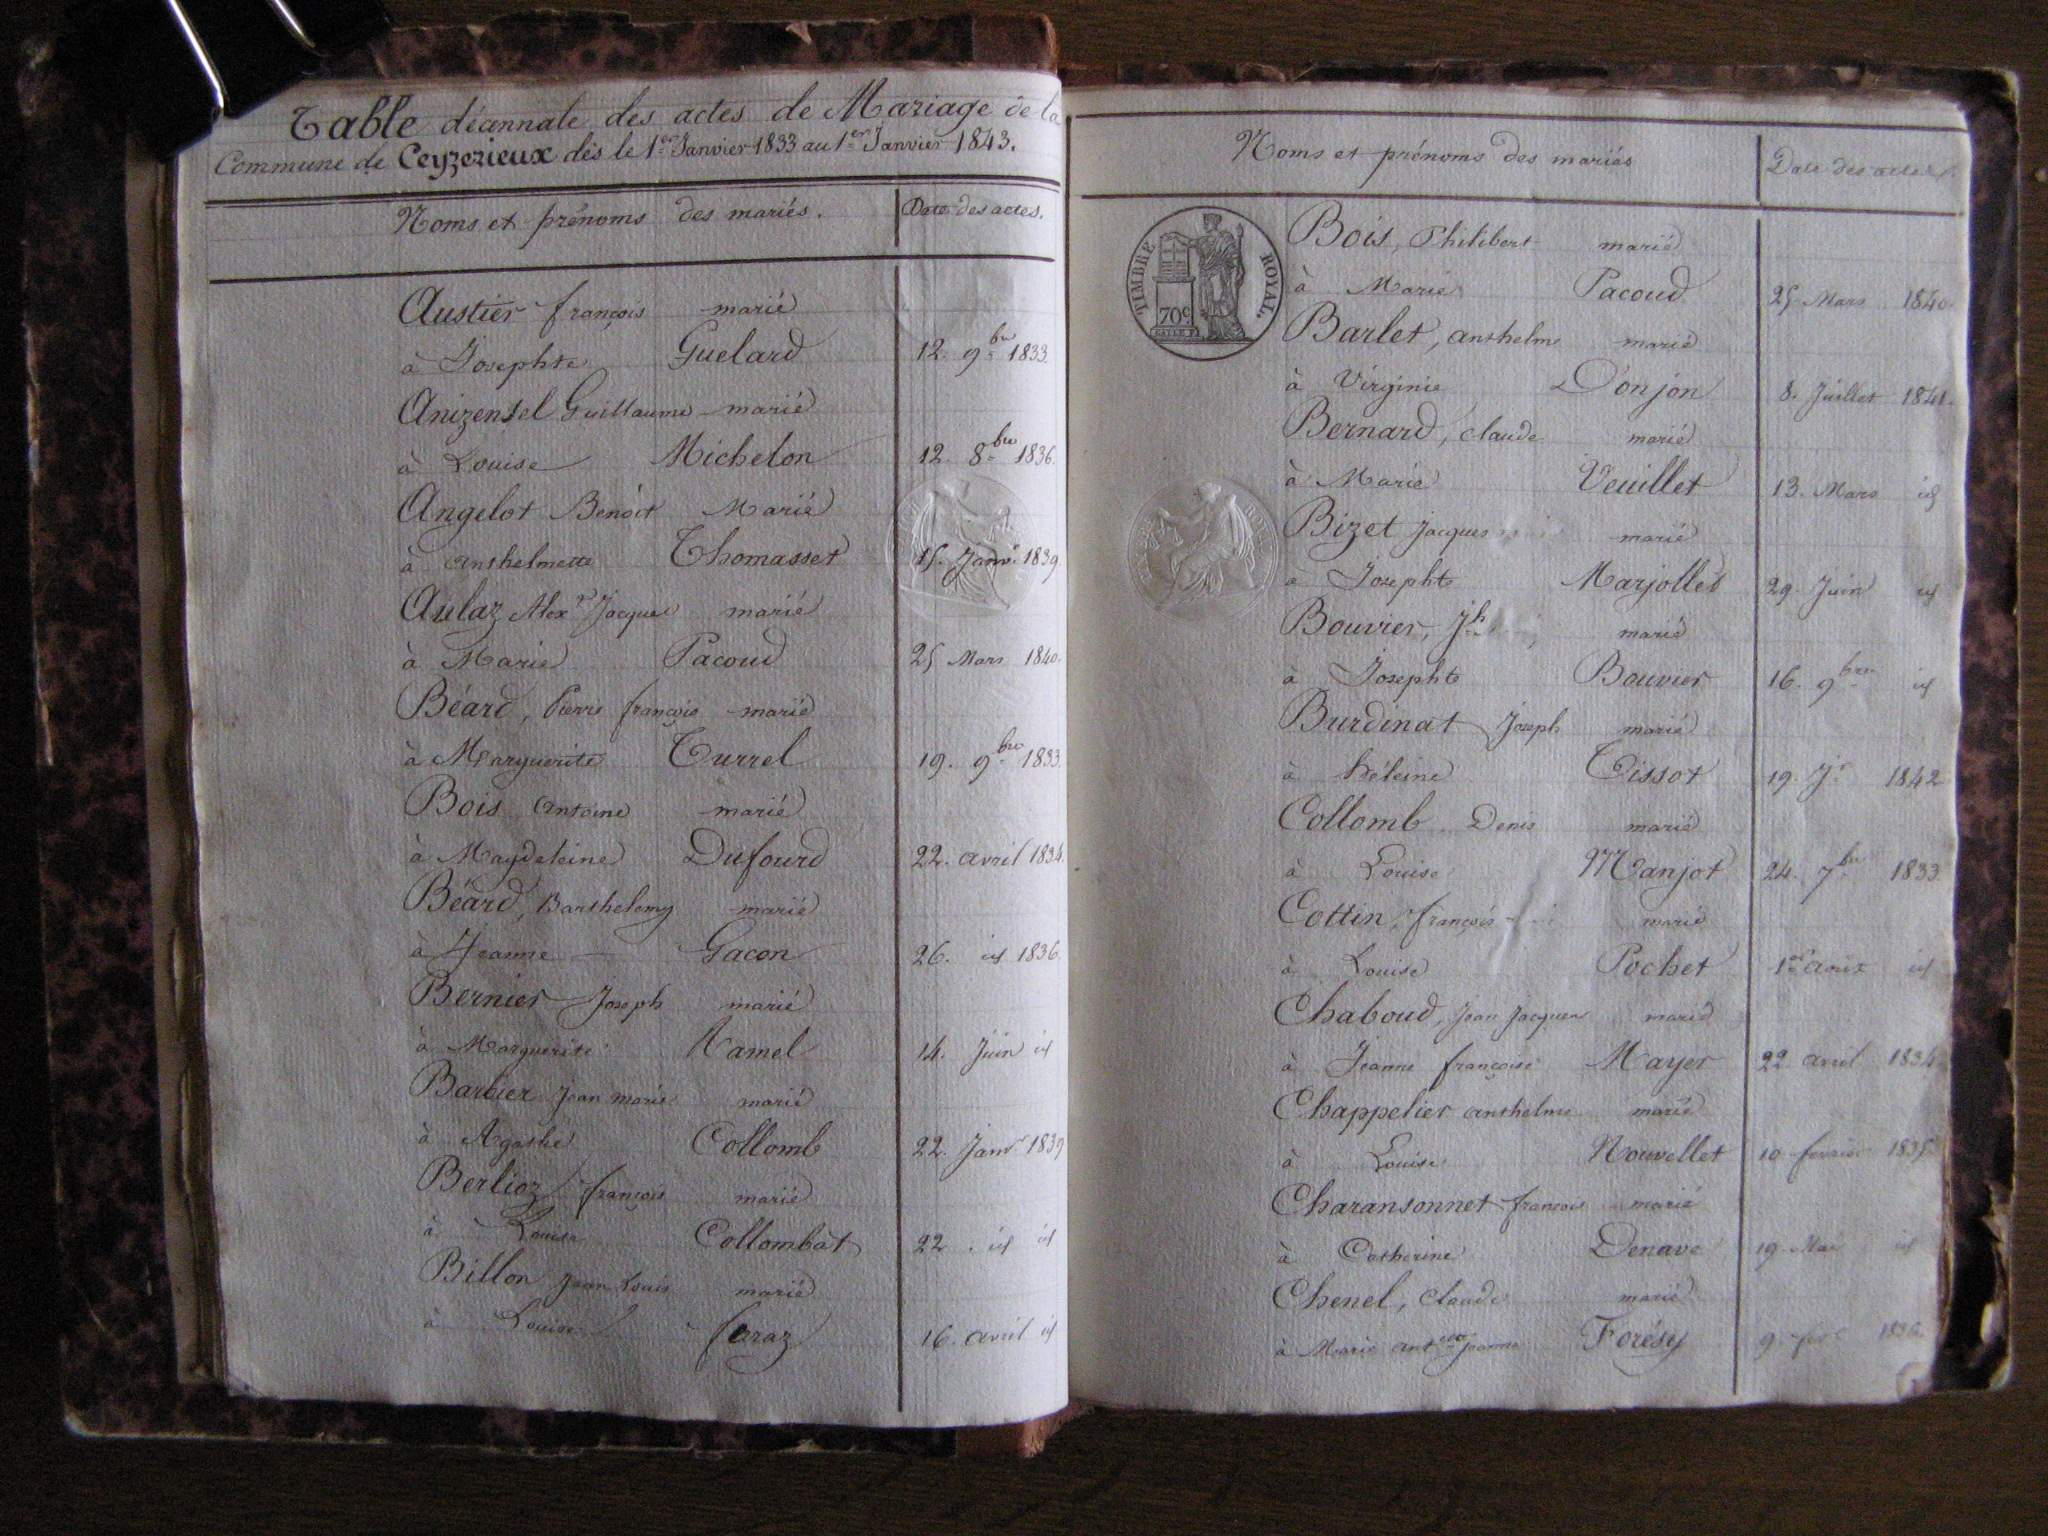 Table décennale des actes de Mariage de la
Commune de Ceyzerieux dès le 1er Janvier 1833 au 1er Janvier 1843.
Noms et prénoms des mariés. Date des actes.
Austier françois marié
à Josephte Guelard 12. 9bre 1833.
Anizensel Guillaume marié
à Louise Michelon 12 8bre 1836.
Angelot Benoit Marié
à anthelmette Thomasset 15. Janvr 1839.
Aulaz Alexre Jacques marié
à Marie Pacoud 25 Mars 1840.
Béard, Pierre françois marié
à Marguerite Turrel 19. 9bre 1833.
Bois Antoine marié
à Magdeleine Dufourd 22. avril 1834.
Béard, Barthelemy marié
à Jeanne Gacon 26. id 1836.
Bernier Joseph marié
à Marguerite Ramel 14. Juin id
Barbier Jean marie marié
à Agathe Collomb 22. Janvr 1839
Berlioz françois marié
à Louise Collombat 22. id id
Billon Jean Louis marié
à Louise faraz 16. avril id
Noms et prénoms des mariés Date des actes.
TIMBRE ROYAL
70c
Bois, Philibert marié
à Marie Pacoud 25 Mars 1840.
Barlet, anthelme marié
à Virginie Donjon 8. Juillet 1841.
Bernard, claude marié
à Marie Veuillet 13. Mars id
Bizet Jacques marié
à Josephte Marjollet 29. Juin id
Bouvier, Jh marié
à Josephte Bouvier 16. 9bre id
Burdinat Joseph marié
à héleine Tissot 19. Jr 1842
Collomb Denis marié
à Louise Manjot 24. 7bre 1833.
Cottin, françois marié
à Louise Pochet 1er aout id
Chaboud, Jean Jacques marié
à Jeanne françoise Mayer 22 avril 1834
Chappelier anthelme marié
à Louise Nouvellet 10 fevrier 1835
Charansonnet françois marié
à Catherine Denave 19. Mai id
Chenel, Claude marié
à Marie Jeanne Forésy 9. 1836.